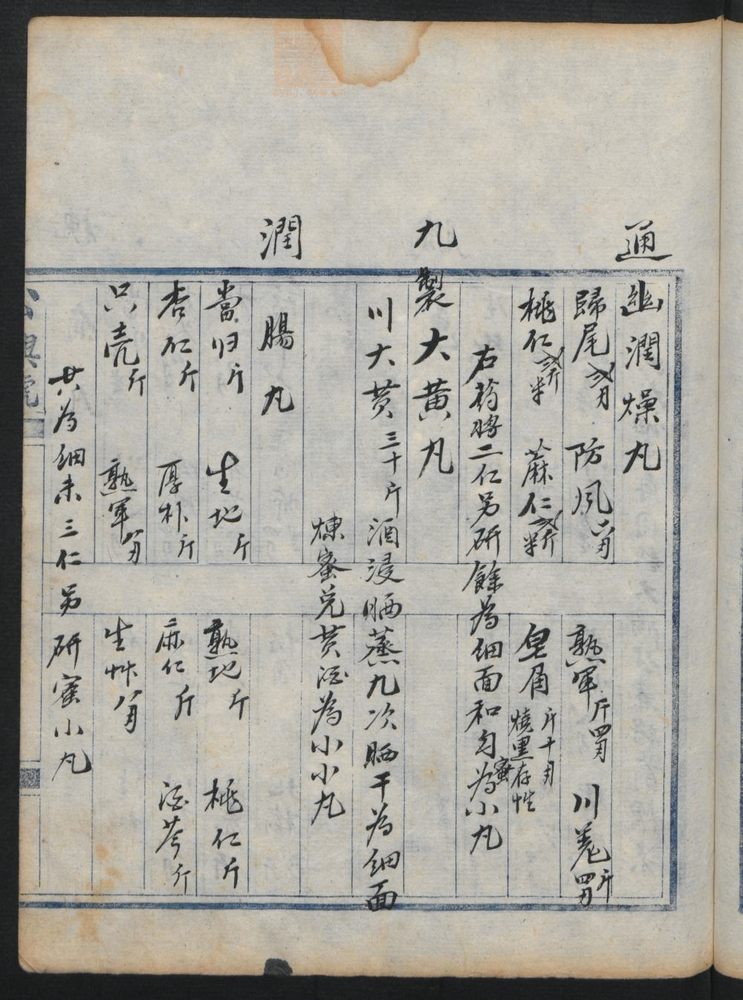 通幽潤燥丸
歸尾 防風 熟軍斤四两 川羌斤四两
桃仁 蔴仁 皂角斤十两燒黑存性
右药將二仁另研餘為細面和匀蜜為小丸
九製大黃丸
川大黃三十斤酒浸晒蒸九次晒干為細面
煉蜜兌黃酒為小小丸
潤腸丸
當归斤 生地斤 熟地斤 桃仁斤
杏仁斤 厚朴斤 麻仁斤 酒芩斤
只壳斤 熟軍 生艸
共為細末三仁另研蜜小丸